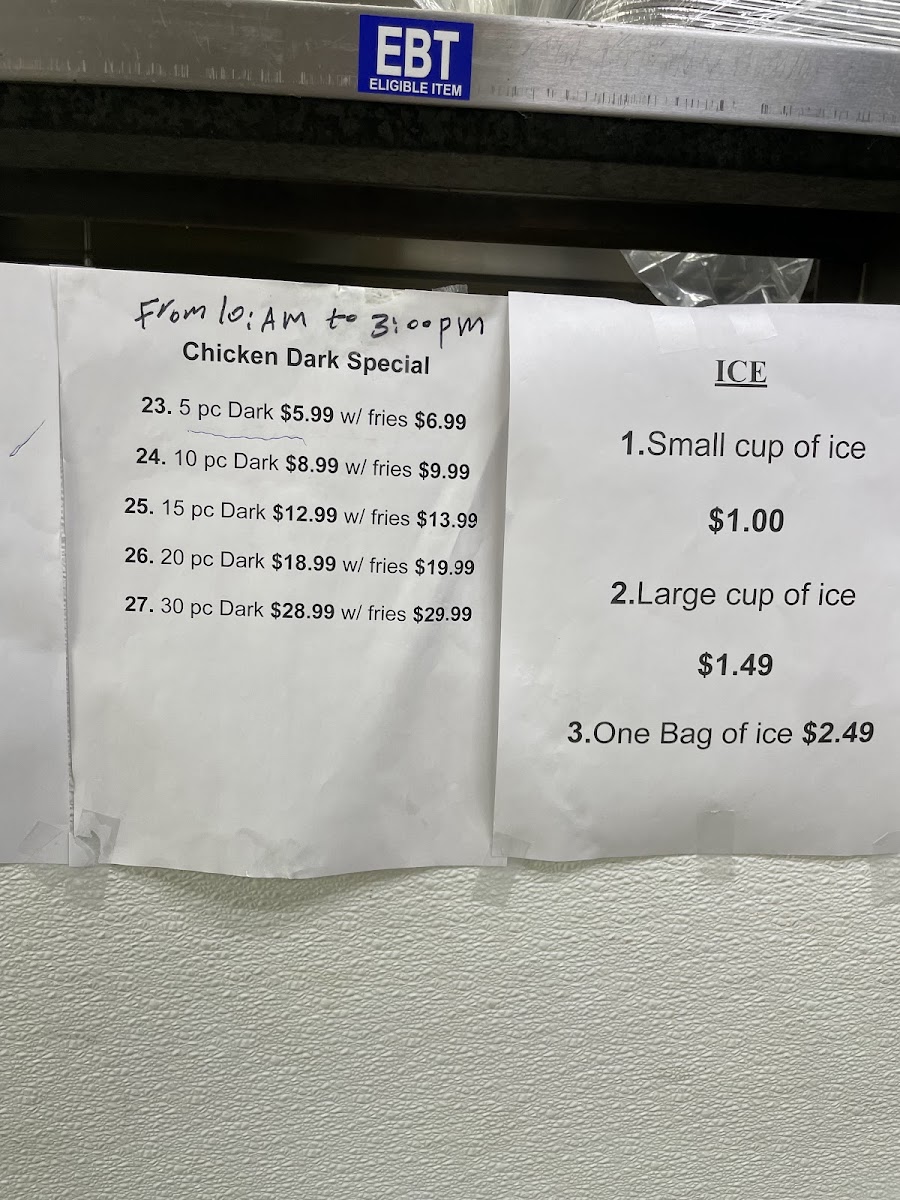 EBT
ELIGIBLE ITEM
From 10:AM to 3:00pm
Chicken Dark Special
23. 5 pc Dark $5.99 w/ fries $6.99
24. 10 pc Dark $8.99 w/ fries $9.99
25. 15 pc Dark $12.99 w/ fries $13.99
26. 20 pc Dark $18.99 w/ fries $19.99
27. 30 pc Dark $28.99 w/ fries $29.99
ICE
1.Small cup of ice
$1.00
2.Large cup of ice
$1.49
3.One Bag of ice $2.49